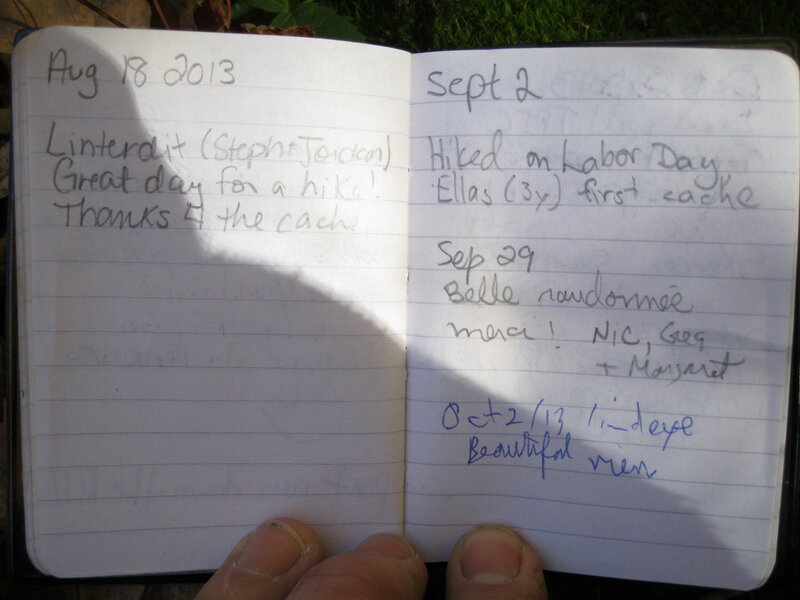 Aug 18 2013
Linterdit (Steph + Jordan)
Great day for a hike!
Thanks 4 the cache
Sept 2
Hiked on Labor Day
Ellas (3y) first cache
Sep 29
Belle randonnée
merci! Nic, Greg
+ Margaret
Oct 2/13
Beautiful view